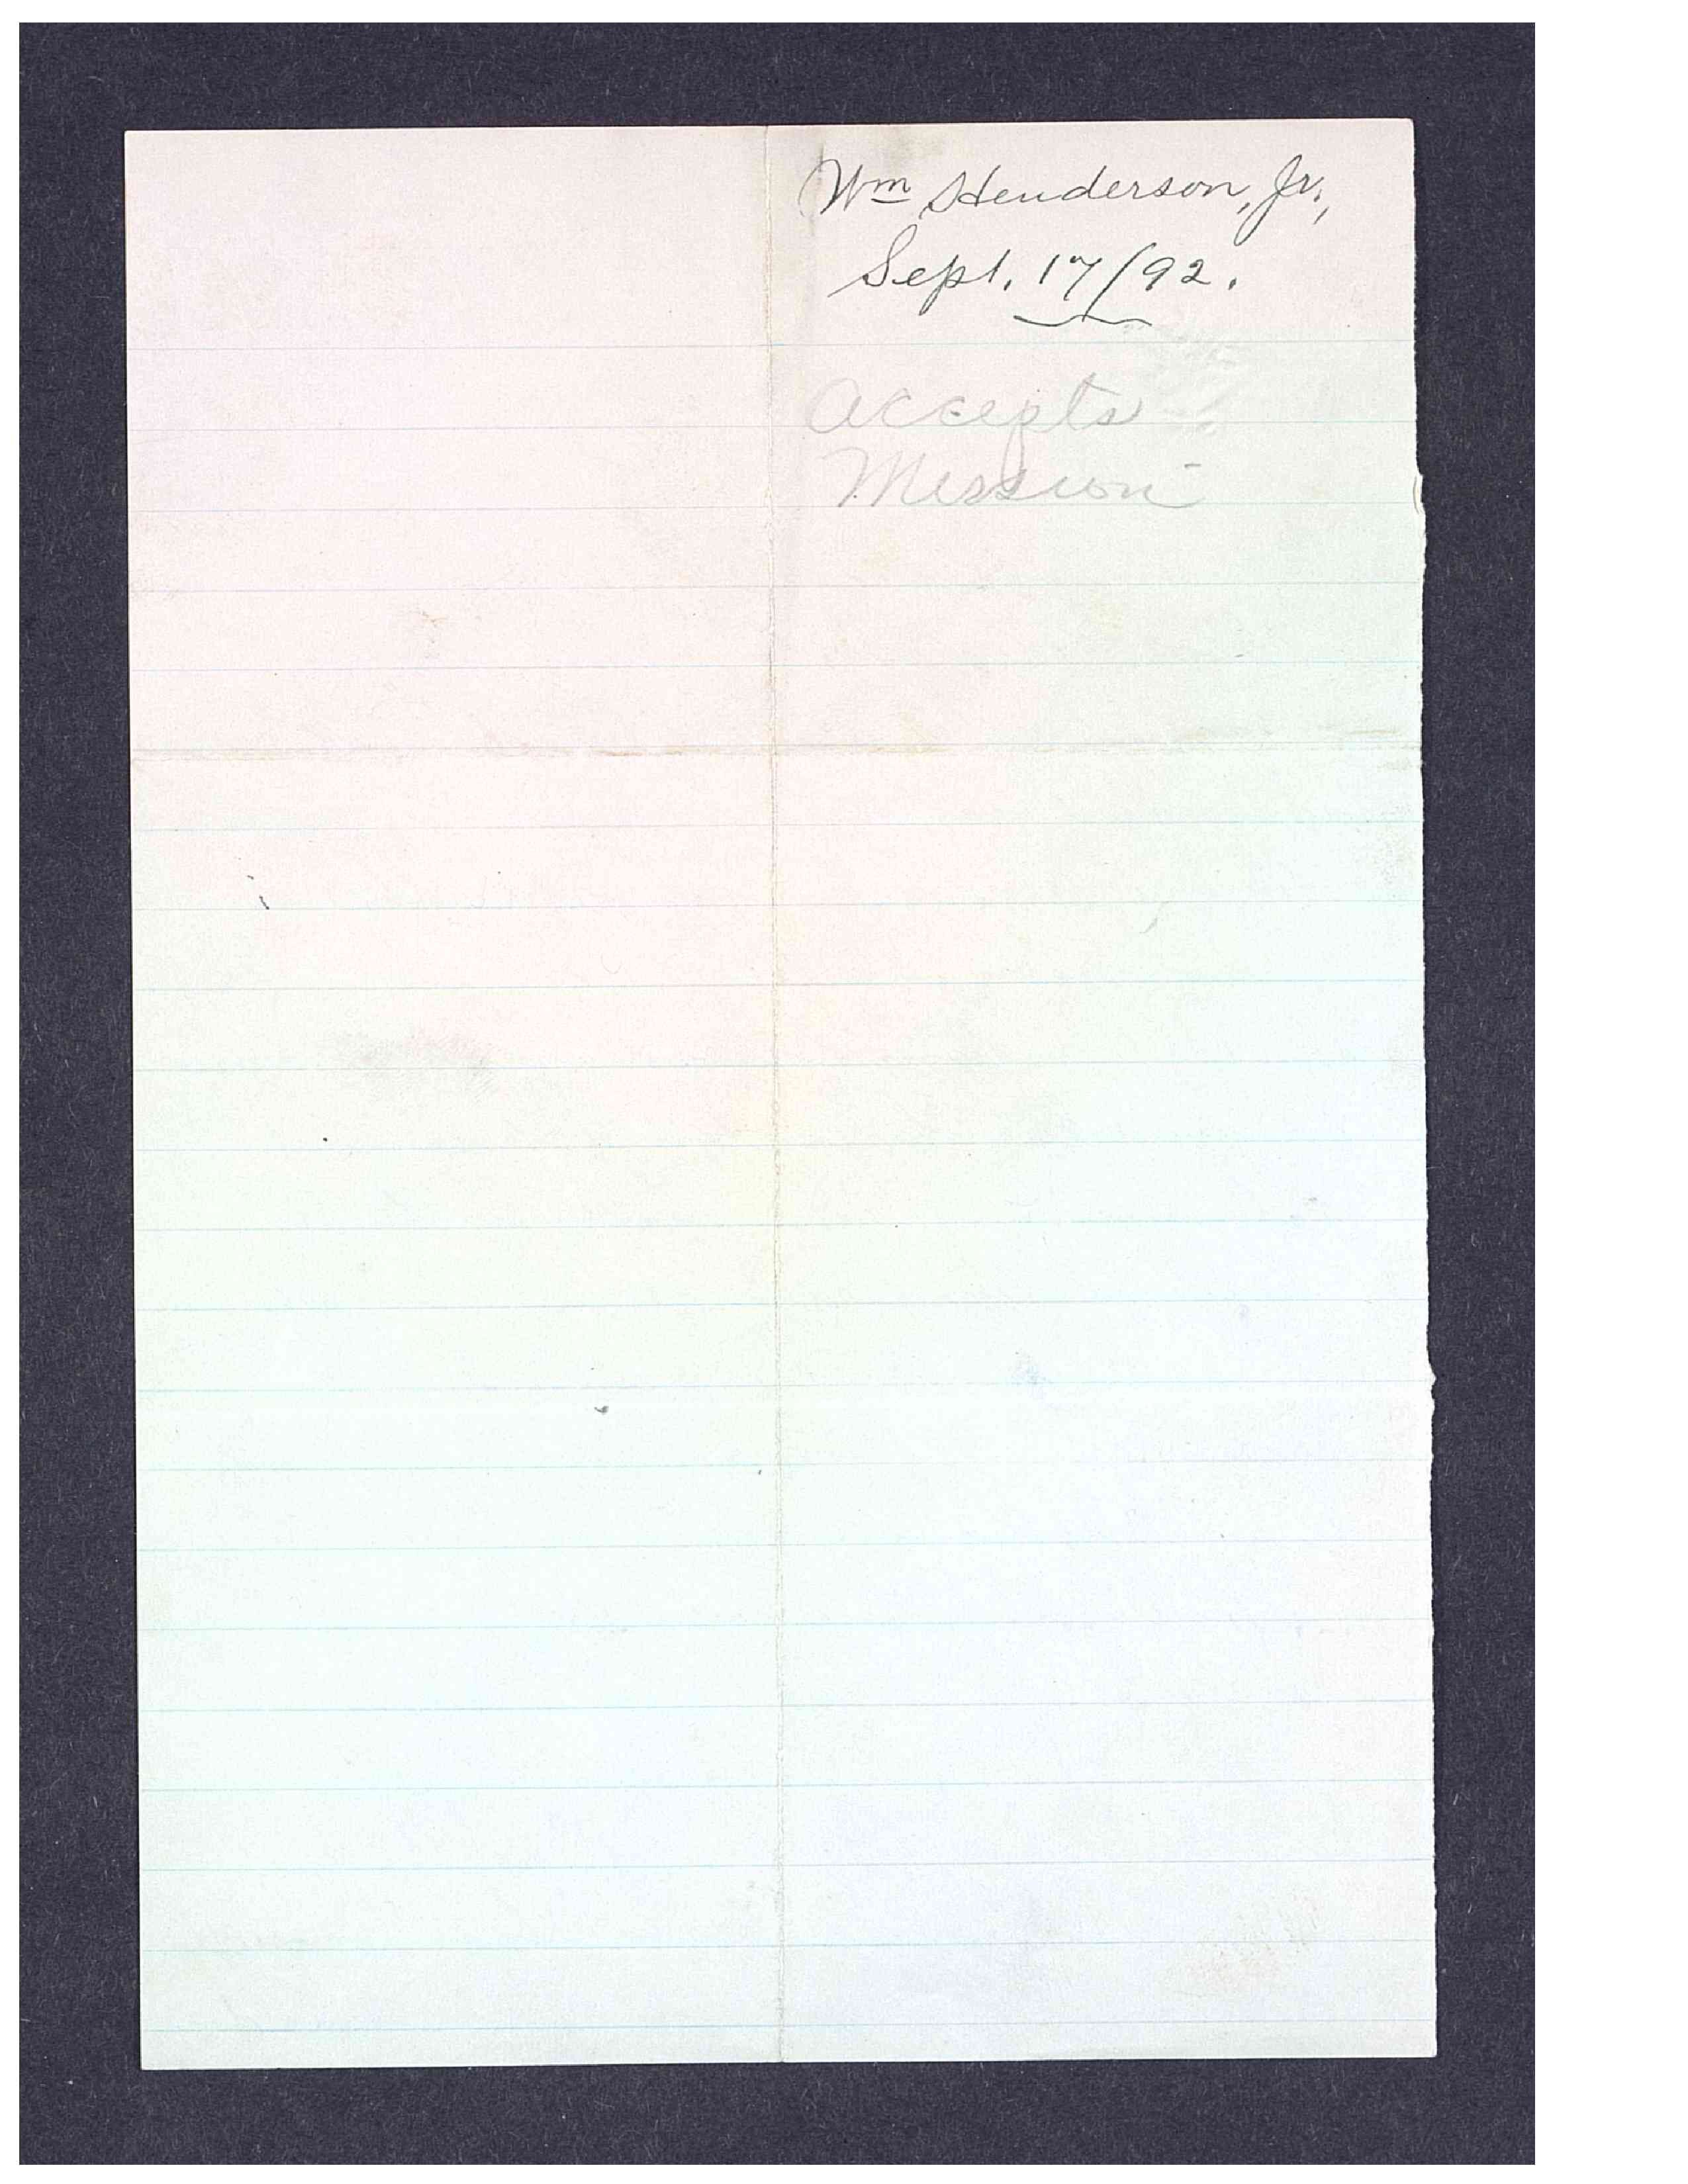 Wm Henderson, Jr.,
Sept. 17/92.
Accepts
Mission